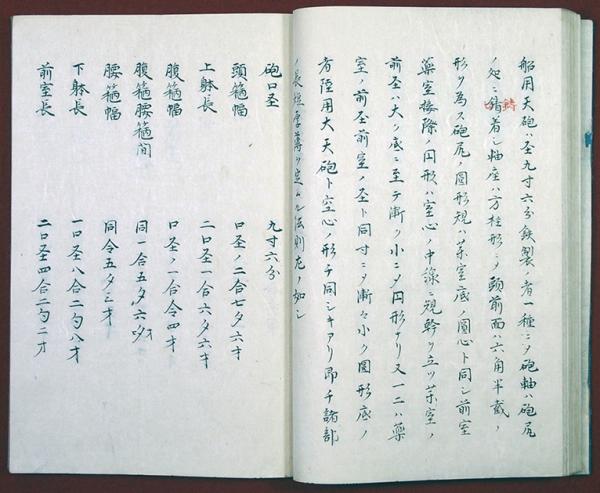 船用天砲ハ圣九寸六分鉄製ノ者一種ニメ砲軸ハ砲尻
ノ処ニ鋳着シ軸座ハ方柱形ニメ頭前面ハ六角半截ノ
形ヲ為ス砲尻ノ圓形規ハ茉室底ノ圓心ト同シ前室
藥室接際ノ円形ハ室心ノ中線ニ規幹ヲ立ツ茉室ノ
前圣ハ大ク底ニ至テ漸ク小ニメ円形ナリ又一二ハ藥
室ノ前圣前室ノ圣ト同寸ニメ漸々小ク圓形底ノ
者陸用大天砲ト空心ノ形チ同シキアリ即チ諸部
ノ長短厚薄ヲ定ムル法則左ノ如シ
砲口圣 九寸六分
頭箍幅 口圣ノ二合七夕六才
上躰長 二口圣一合六夕六才
腹箍幅 口圣ノ一合令四才
腹箍腰箍間 同一合五夕六才
腰箍幅 同令五夕三才
下躰長 一口圣八合二勺八才
前室長 二口圣四合二勺二才